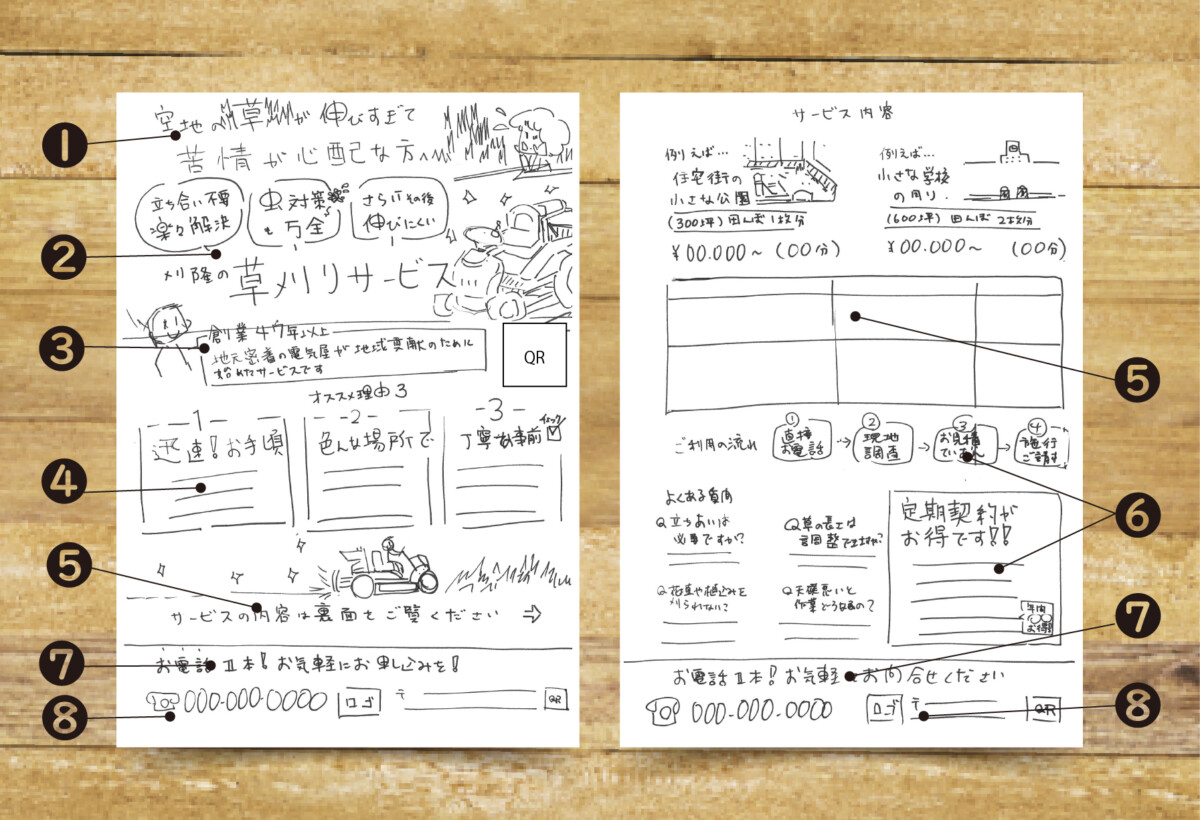 ❶
空地の草が伸びすぎて
苦情が心配な方へ
立ち合い不要
楽々解決
虫対策
も万全
さらにその後
伸びにくい
❷
刈隆の草刈りサービス
❸
創業47年以上
地元密着の電気屋が地域貢献のために
始めたサービスです
QR
オススメ理由3
-1-
迅速!お手頃
-2-
色んな場所で
-3-
丁寧な事前
チェック
❹
❺
サービスの内容は裏面をご覧ください
❼
お電話1本!お気軽にお申し込みを!
❽
000-000-0000
ロゴ
〒
QR
サービス内容
例えば…
住宅街の
小さな公園
(300坪)田んぼ1枚分
¥00.000~(00分)
例えば…
小さな学校
の周り
(600坪)田んぼ2枚分
¥00.000~(00分)
❺
ご利用の流れ
①
直接
お電話
②
現地
調査
③
お見積
④
施行
❻
よくある質問
Q立ちあいは
必要ですか?
Q草の長さは
調整できますか?
Q花壇や植込みを
刈られない?
Q天候悪いと
作業どうなるの?
定期契約が
お得です!!
年間
〇〇
お得
❼
お電話1本!お気軽にお問合せください
❽
000-000-0000
ロゴ
〒
QR